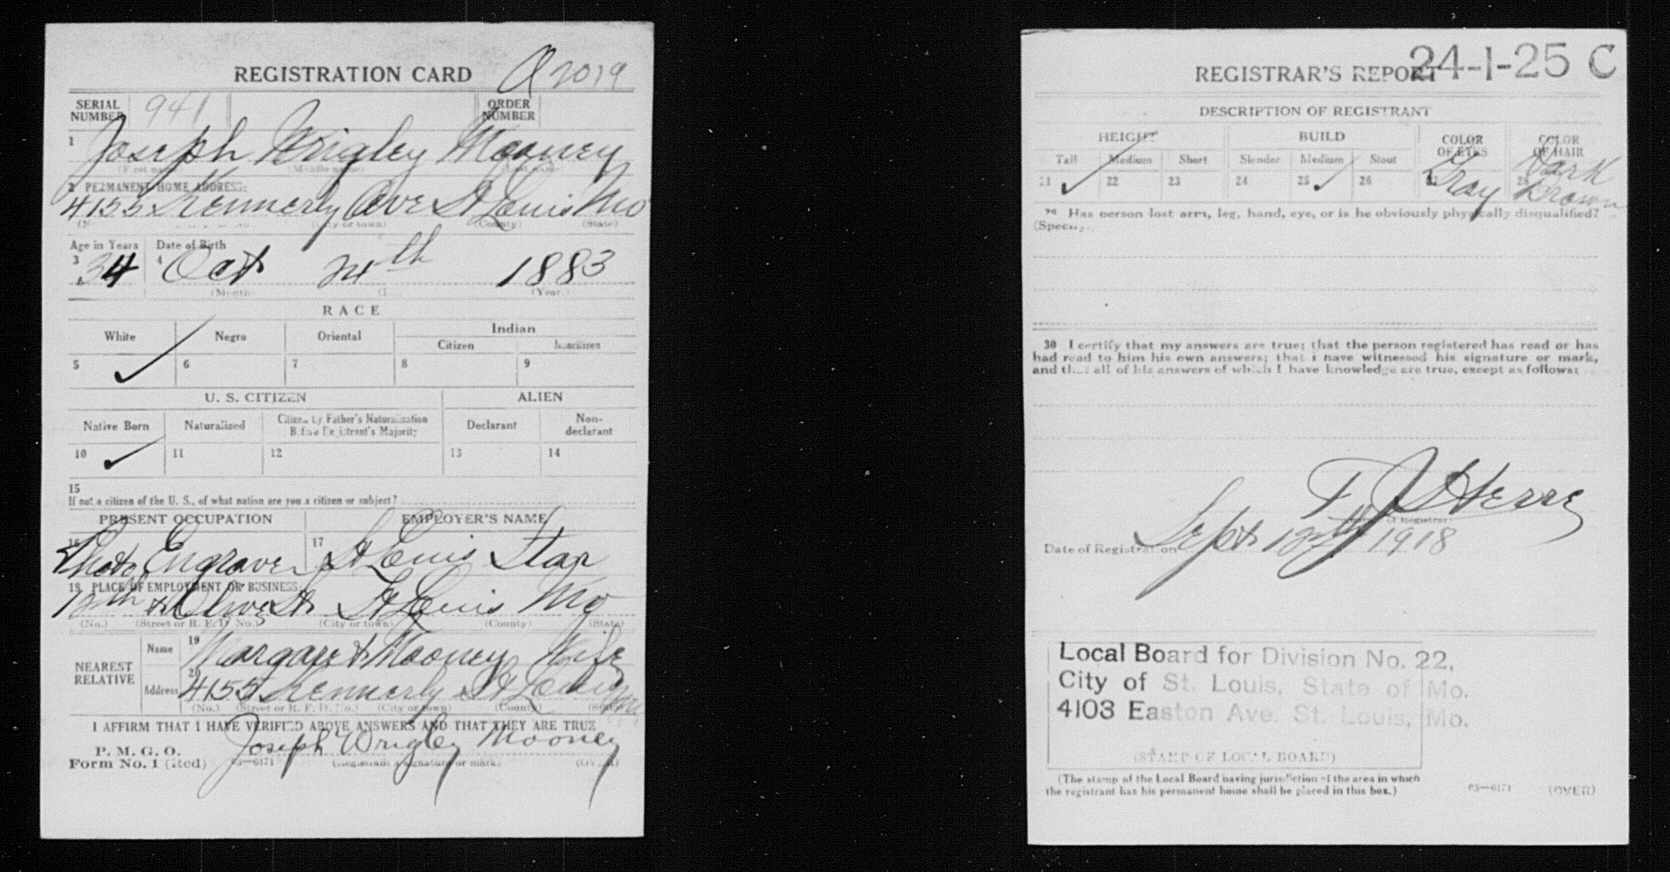 REGISTRATION CARD A2019
SERIAL NUMBER 941 ORDER NUMBER
1 Joseph Wrigley Mooney
(First name) (Middle name) (Last name)
2 PERMANENT HOME ADDRESS:
4155 Kennerly Ave St Louis Mo
(City or town) (County) (State)
Age in Years Date of Birth
3 34 4 Oct 24th 1883
(Month) (Year)
RACE
White Negro Oriental Indian
Citizen Noncitizen
5 ✓ 6 7 8 9
U. S. CITIZEN ALIEN
Native Born Naturalized Citizen by Father's Naturalization Before Registrant's Majority Declarant Non-declarant
10 ✓ 11 12 13 14
15
If not a citizen of the U. S., of what nation are you a citizen or subject?
PRESENT OCCUPATION EMPLOYER'S NAME
16 Photo Engraver 17 St Louis Star
18 PLACE OF EMPLOYMENT OR BUSINESS:
12th & Olive St St Louis Mo
(No.) (Street or R. F. D. No.) (City or town) (County) (State)
NEAREST RELATIVE
Name 19 Margaret Mooney Wife
Address 20 4155 Kennerly St Louis Mo
(No.) (Street or R. F. D. No.) (City or town) (County) (State)
I AFFIRM THAT I HAVE VERIFIED ABOVE ANSWERS AND THAT THEY ARE TRUE
P. M. G. O.
Form No. 1 (Red) 03—6171 Joseph Wrigley Mooney
(Registrant's signature or mark) (OVER)
REGISTRAR'S REPORT 24-1-25 C
DESCRIPTION OF REGISTRANT
HEIGHT BUILD COLOR OF EYES COLOR OF HAIR
Tall Medium Short Slender Medium Stout
21 ✓ 22 23 24 25 ✓ 26 27 Gray 28 Dark Brown
29 Has person lost arm, leg, hand, eye, or is he obviously physically disqualified?
(Specify.)
30 I certify that my answers are true; that the person registered has read or has
had read to him his own answers; that I have witnessed his signature or mark,
and that all of his answers of which I have knowledge are true, except as follows:
F J Herre
(Signature of Registrar)
Date of Registration Sept 12th 1918
Local Board for Division No. 22,
City of St. Louis, State of Mo.
4103 Easton Ave. St. Louis, Mo.
(STAMP OF LOCAL BOARD)
(The stamp of the Local Board having jurisdiction of the area in which
the registrant has his permanent home shall be placed in this box.) 03—6171 (OVER)